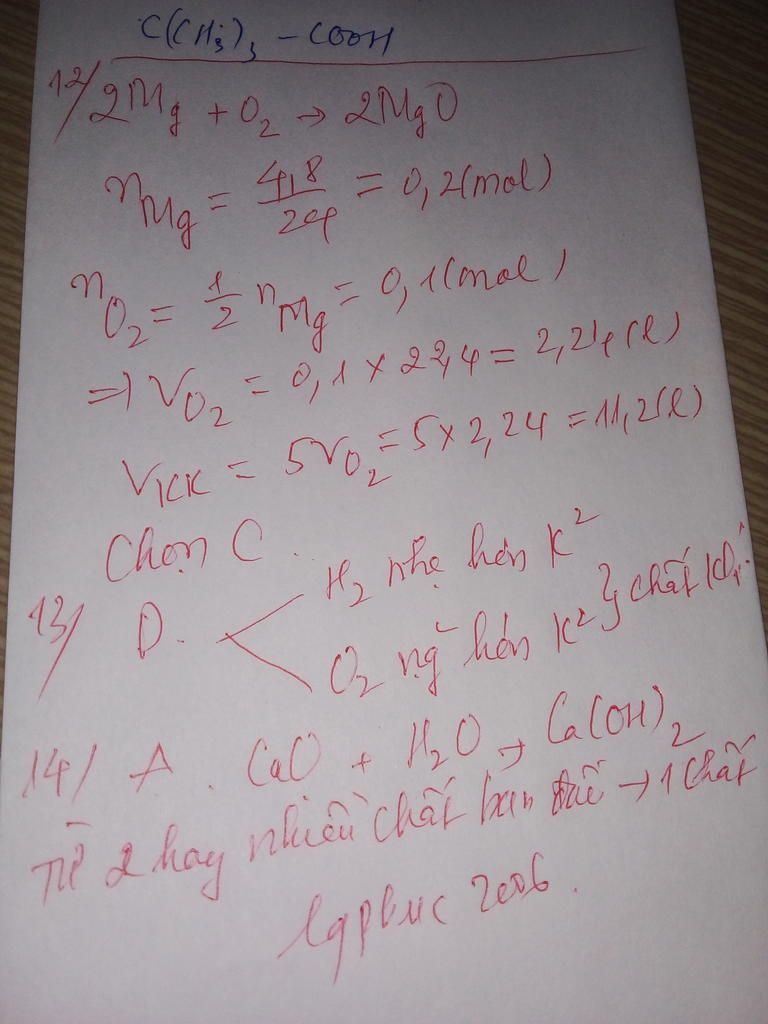 C(CH₃)₃ - COOH
12/ 2Mg + O₂ → 2MgO
nMg = 4,8/24 = 0,2(mol)
nO₂ = 1/2 nMg = 0,1(mol)
=> VO₂ = 0,1 × 22,4 = 2,24(l)
VKK = 5VO₂ = 5×2,24 = 11,2(l)
Chọn C.
13/ D. H₂ nhẹ hơn K²
O₂ ng̃ hơn K² } chất khí.
14/ A. CaO + H₂O → Ca(OH)₂
Từ 2 hay nhiều chất ban đầu → 1 chất
lgphuc 2006.